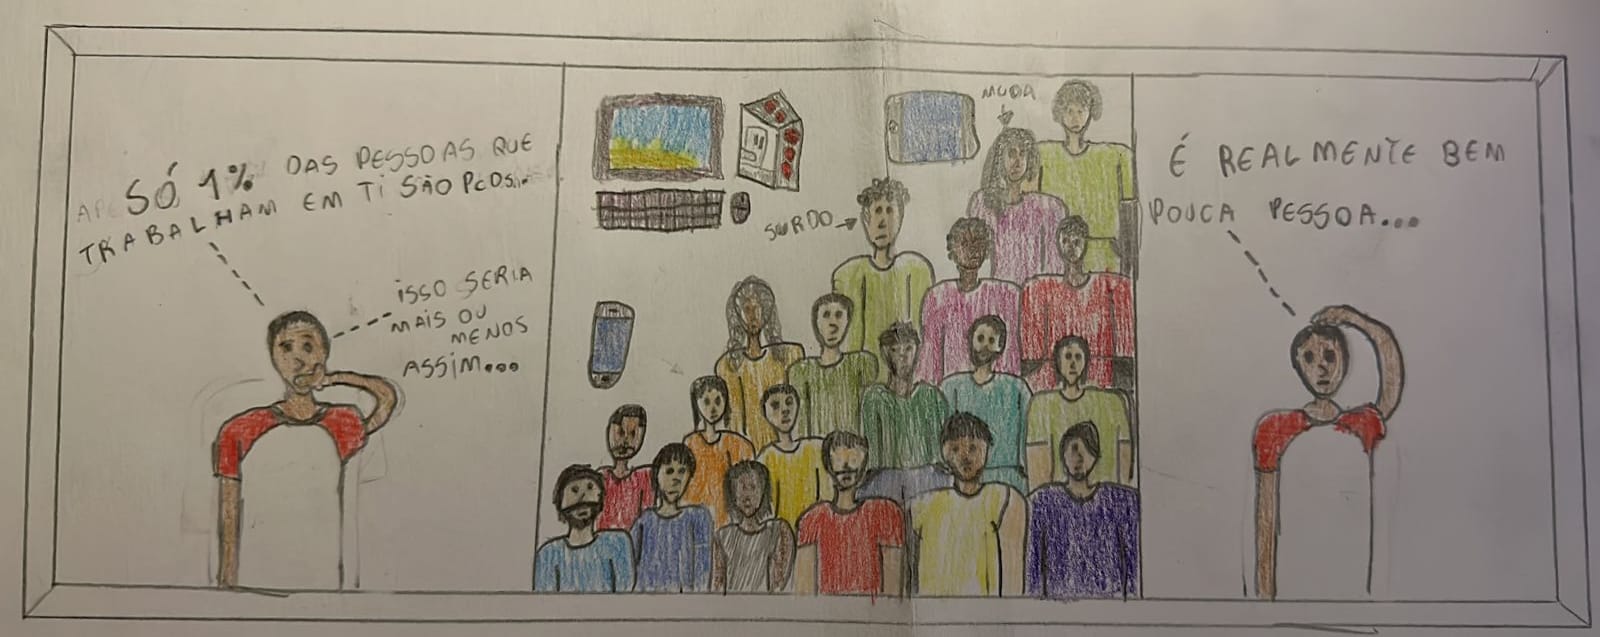 SÓ 1% DAS PESSOAS QUE
TRABALHAM EM TI SÃO PCDS...
ISSO SERIA
MAIS OU
MENOS
ASSIM...
MUDA
SURDO
É REALMENTE BEM
POUCA PESSOA...